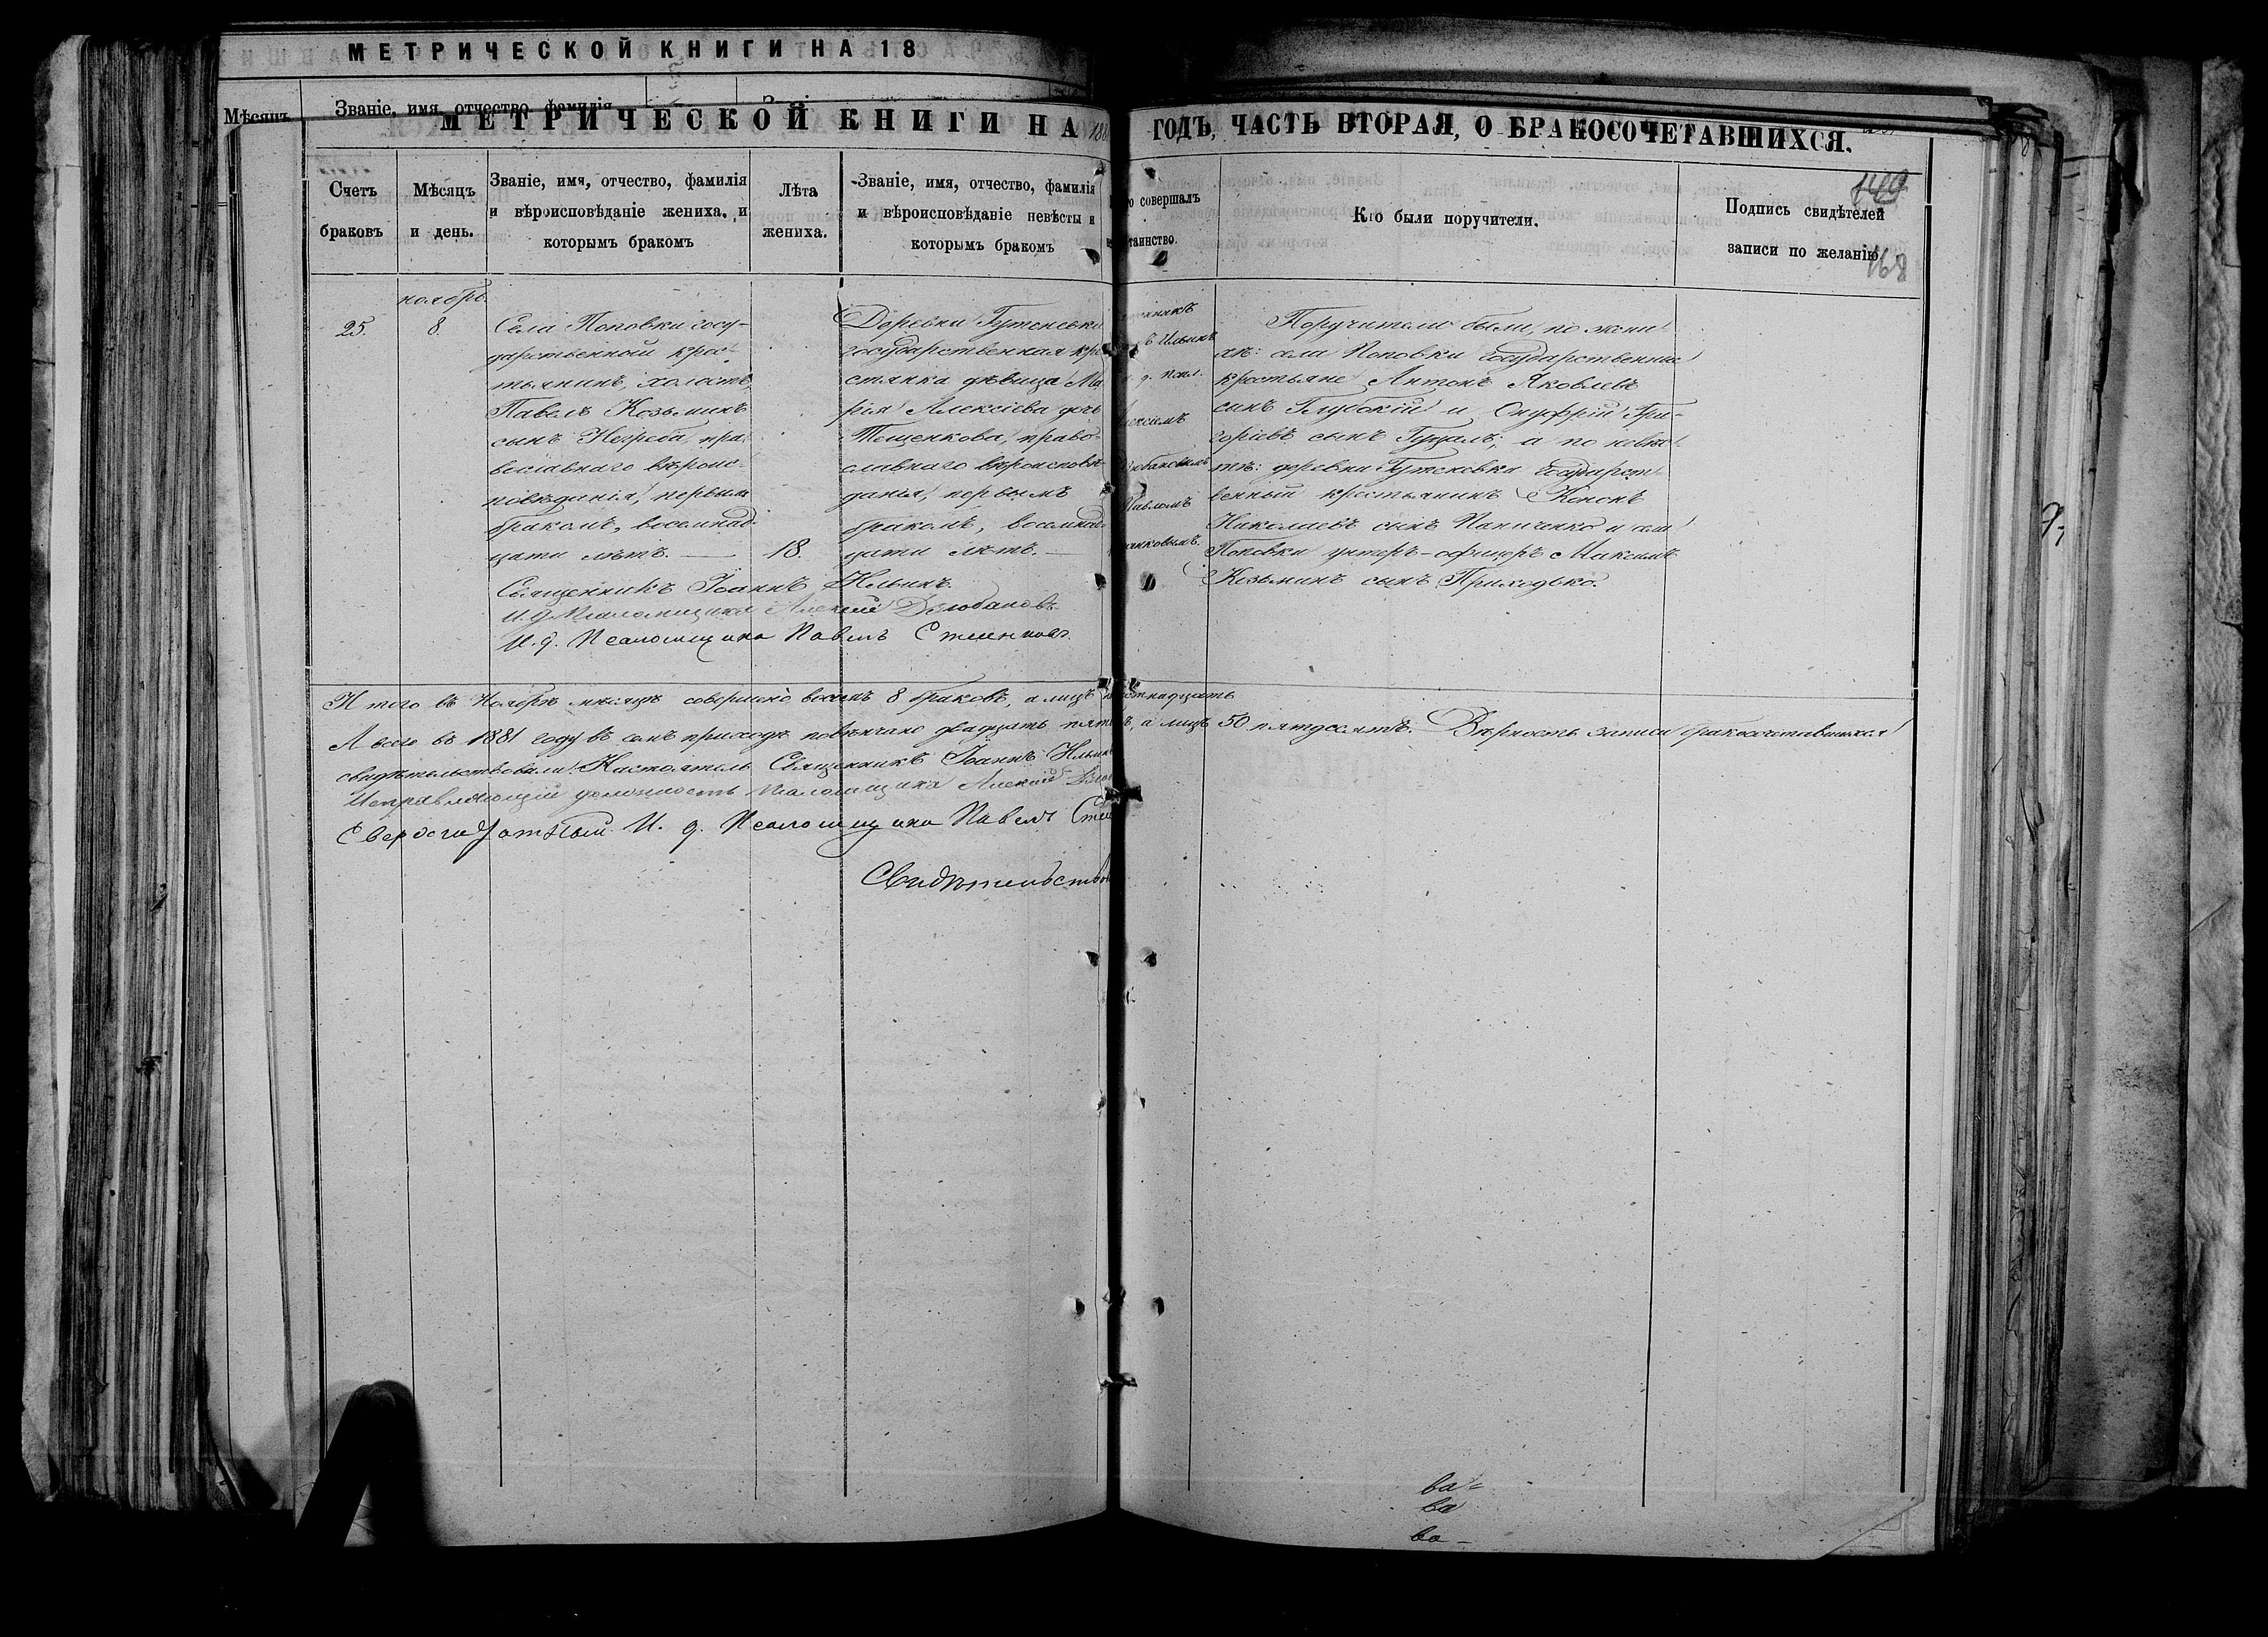 МЕТРИЧЕСКОЙ КНИГИ НА 18
Мѣсяцъ Званіе, имя, отчество, фамилія
МЕТРИЧЕСКОЙ КНИГИ НА 188
ГОДЪ, ЧАСТЬ ВТОРАЯ, О БРАКОСОЧЕТАВШИХСЯ.
149
168
Счетъ браковъ
Мѣсяцъ и день.
Званіе, имя, отчество, фамилія
и вѣроисповѣданіе жениха, и
которымъ бракомъ
Лѣта
жениха.
Званіе, имя, отчество, фамилія
и вѣроисповѣданіе невѣсты и
которымъ бракомъ
о совершалъ
таинство.
Кто были поручители.
Подпись свидѣтелей
записи по желанію
ноябрь
25.
8.
Села Поповки госу-
дарственный крес-
тьянинъ, холостъ,
Павелъ Козьминъ
сынъ Негреба, пра-
вославнаго вѣроис-
повѣданія, первымъ
бракомъ, восемнад-
цати лѣтъ.
18.
Деревни
государственная кре
стянка дѣвица Ма
рія Алексіева дочь
Тещенкова, право-
славнаго вѣроисповѣ-
данія, первымъ
бракомъ, восемнад-
цати лѣтъ.
Ильинъ
Павломъ
Поручители были, по жени-
хѣ: села Поповки государственные
крестьяне Антонъ Яковлевъ
сынъ Глубокій и Онуфрій Гри-
горіевъ сынъ; а по невѣс-
тѣ: деревни государст-
венный крестьянинъ Кононъ
Николаевъ сынъ Паниченко и села
Поповки унтеръ-офицеръ Максимъ
Козьминъ сынъ Приходько.
Священникъ Іоаннъ Ильинъ.
И. д. Псаломщика Алексій
И. д. Псаломщика Павелъ
Итого въ Ноябрѣ мѣсяцѣ совершено восемь 8 браковъ, а лицъ шестнадцать
А всего въ 1881 году въ семъ приходѣ повѣнчано двадцать пять, а лицъ 50 пятдесятъ. Вѣрность записи бракосочетавшихся
свидѣтельствовали: Настоятель Священникъ Іоаннъ Ильинъ
Исправляющій должность Псаломщика Алексій
Сверхштатный И. д. Псаломщика Павелъ
Свидѣтельствов
ва-
ва
ва-